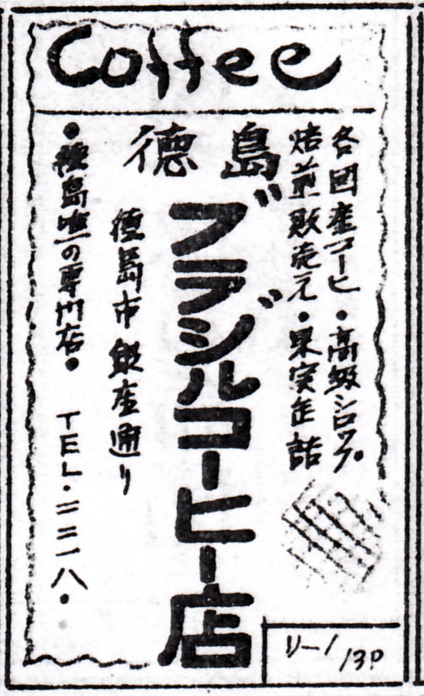 Coffee
各國産コーヒ・高級シロップ
焙煎販売元・果実缶詰
徳島
ブラジルコーヒー店
徳島市銀座通り
・徳島唯一の専門店・ TEL・二二一八・